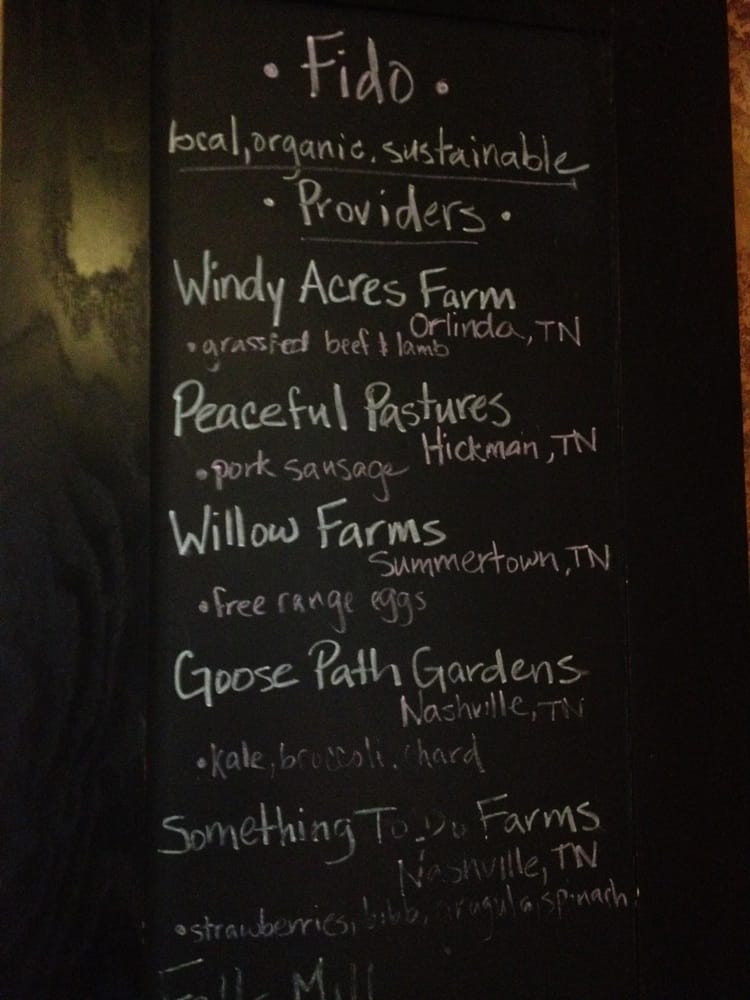 • Fido •
local, organic, sustainable
• Providers •
Windy Acres Farm
Orlinda, TN
• grassfed beef & lamb
Peaceful Pastures
Hickman, TN
• pork sausage
Willow Farms
Summertown, TN
• free range eggs
Goose Path Gardens
Nashville, TN
• kale, broccoli, chard
Something To Do Farms
Nashville, TN
• strawberries, bibb, arugula, spinach
Falls Mill